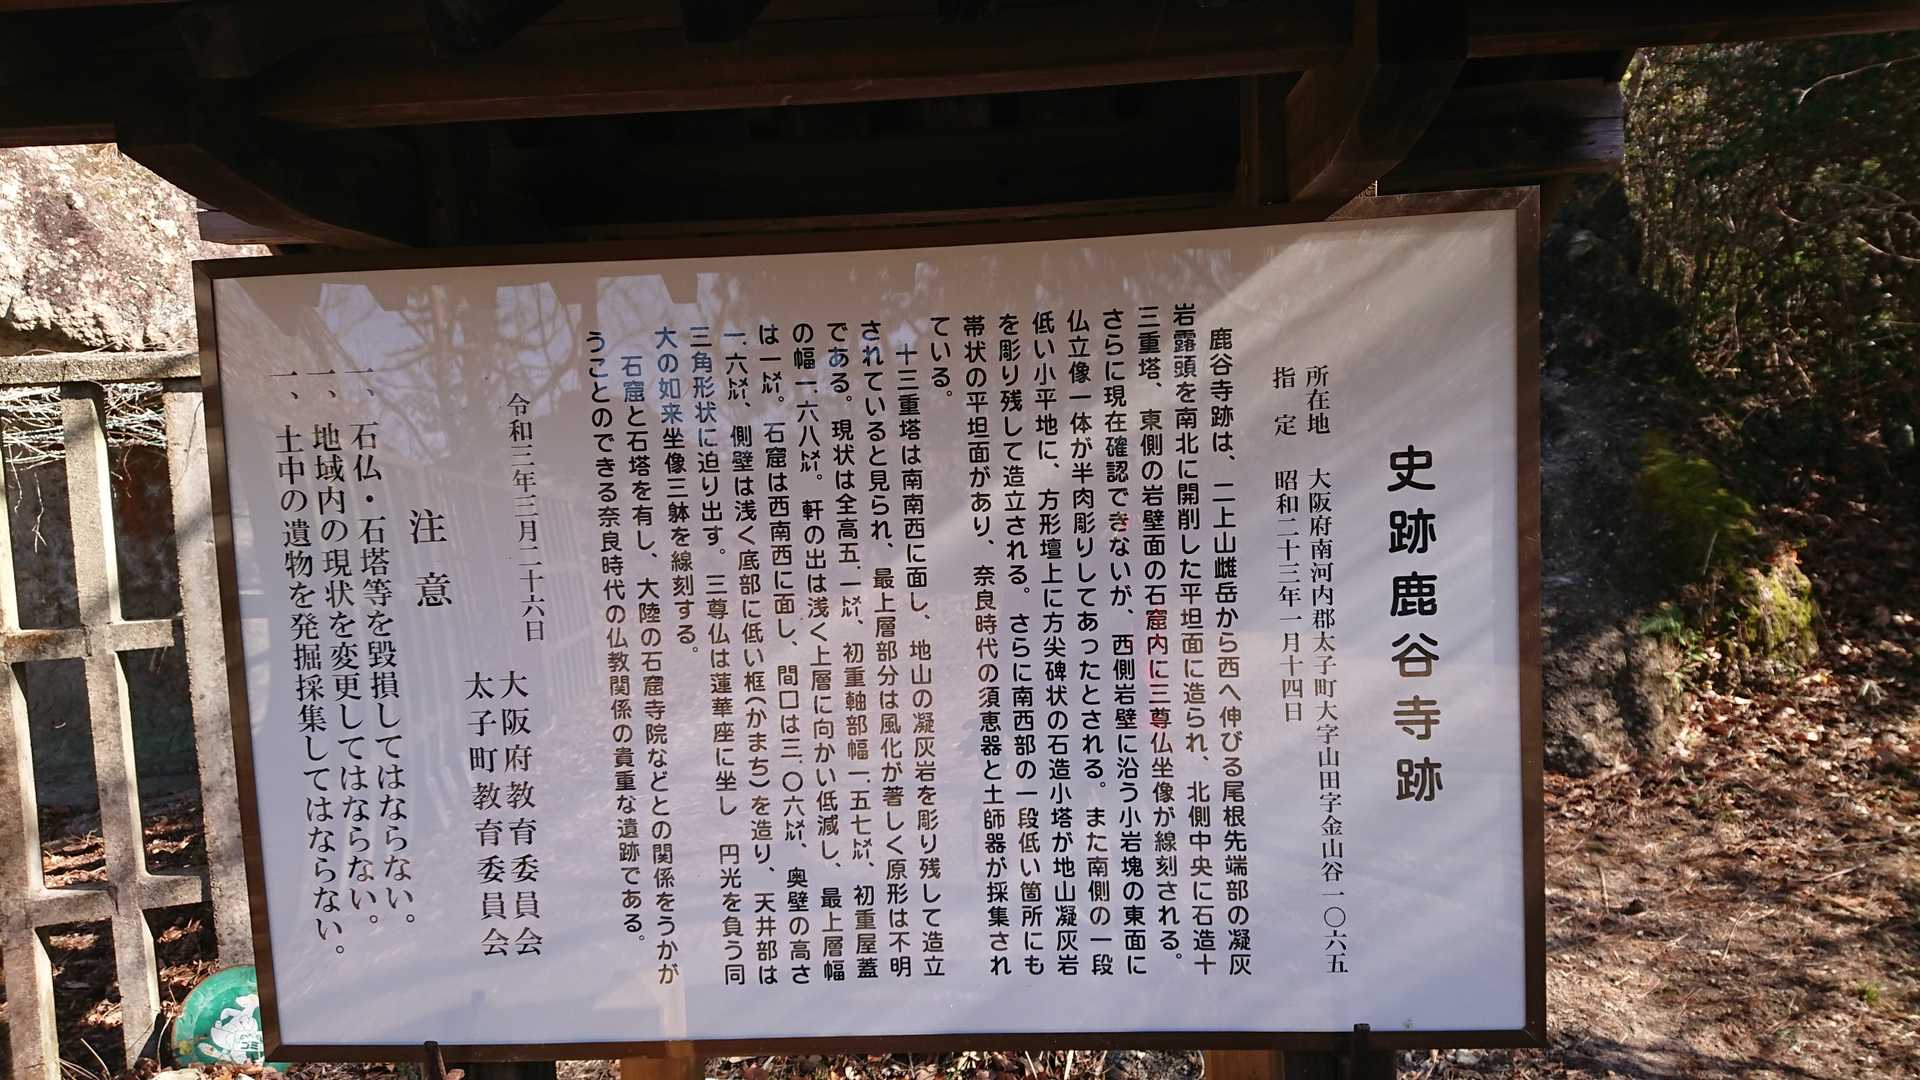 史跡鹿谷寺跡
所在地　大阪府南河内郡太子町大字山田字金山谷一〇六五
指　定　昭和二十三年一月十四日
鹿谷寺跡は、二上山雌岳から西へ伸びる尾根先端部の凝灰
岩露頭を南北に開削した平坦面に造られ、北側中央に石造十
三重塔、東側の岩壁面の石窟内に三尊仏坐像が線刻される。
さらに現在確認できないが、西側岩壁に沿う小岩塊の東面に
仏立像一体が半肉彫りしてあったとされる。また南側の一段
低い小平地に、方形壇上に方尖碑状の石造小塔が地山凝灰岩
を彫り残して造立される。さらに南西部の一段低い箇所にも
帯状の平坦面があり、奈良時代の須恵器と土師器が採集され
ている。
十三重塔は南南西に面し、地山の凝灰岩を彫り残して造立
されていると見られ、最上層部分は風化が著しく原形は不明
である。現状は全高五.一㍍、初重軸部幅一.五七㍍、初重屋蓋
の幅一.六八㍍。軒の出は浅く上層に向かい低減し、最上層幅
は一㍍。石窟は西南西に面し、間口は三.〇六㍍、奥壁の高さ
一.六㍍、側壁は浅く底部に低い框(かまち)を造り、天井部は
三角形状に迫り出す。三尊仏は蓮華座に坐し　円光を負う同
大の如来坐像三躰を線刻する。
石窟と石塔を有し、大陸の石窟寺院などとの関係をうかが
うことのできる奈良時代の仏教関係の貴重な遺跡である。
令和三年三月二十六日
大阪府教育委員会
太子町教育委員会
注　意
一、石仏・石塔等を毀損してはならない。
一、地域内の現状を変更してはならない。
一、土中の遺物を発掘採集してはならない。